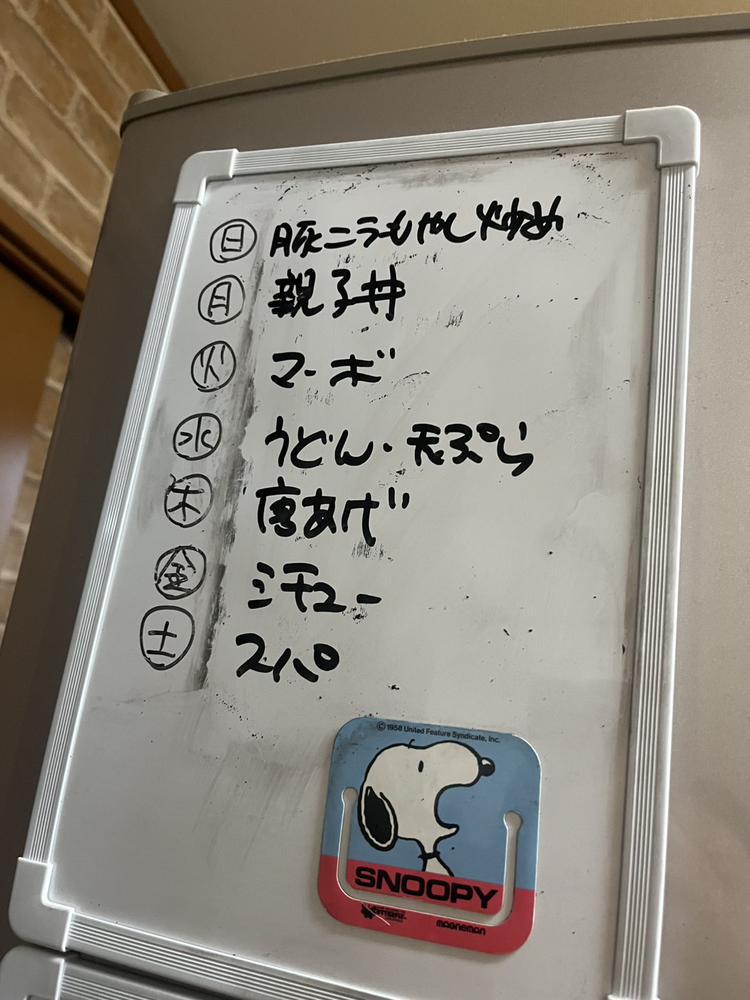 日 豚ニラもやし炒め
月 親子丼
火 マーボ
水 うどん・天ぷら
木 唐あげ
金 シチュー
土 スパ
© 1958 United Feature Syndicate, Inc.
SNOOPY
BUTTERFLY
MAGNEMAN